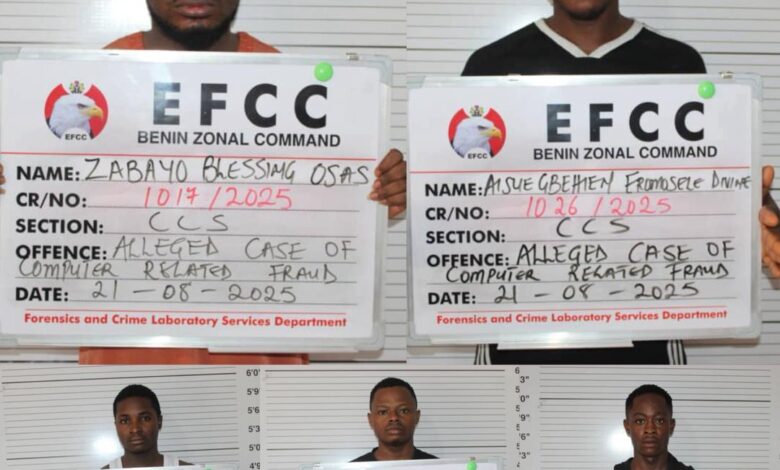 EFCC
BENIN ZONAL COMMAND
EFCC
NAME: ZABAYO BLESSING OSAS
CR/NO: 1017/2025
SECTION: CCS
OFFENCE: ALLEGED CASE OF
COMPUTER RELATED FRAUD
DATE: 21-08-2025
Forensics and Crime Laboratory Services Department
EFCC
BENIN ZONAL COMMAND
EFCC
NAME: AISUEGBEHIEN EROMOSELE DIVINE
CR/NO: 1026/2025
SECTION: CCS
OFFENCE: ALLEGED CASE OF
COMPUTER RELATED FRAUD
DATE: 21-08-2025
Forensics and Crime Laboratory Services Department
6'0"
5'9"
5'6"
5'3"
5'0"
4'9"